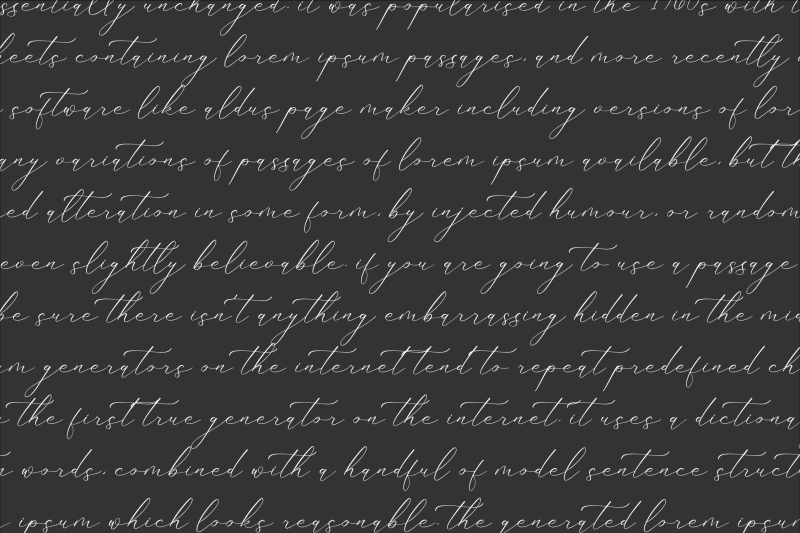 ssentially unchanged. it was popularised in the 1960s with t
heets containing lorem ipsum passages, and more recently
software like aldus page maker including versions of lor
any variations of passages of lorem ipsum available, but th
ed alteration in some form, by injected humour, or random
even slightly believable. if you are going to use a passage
be sure there isn't anything embarrassing hidden in the mid
m generators on the internet tend to repeat predefined ch
the first true generator on the internet. it uses a dictiona
words, combined with a handful of model sentence struct
ipsum which looks reasonable. the generated lorem ipsum